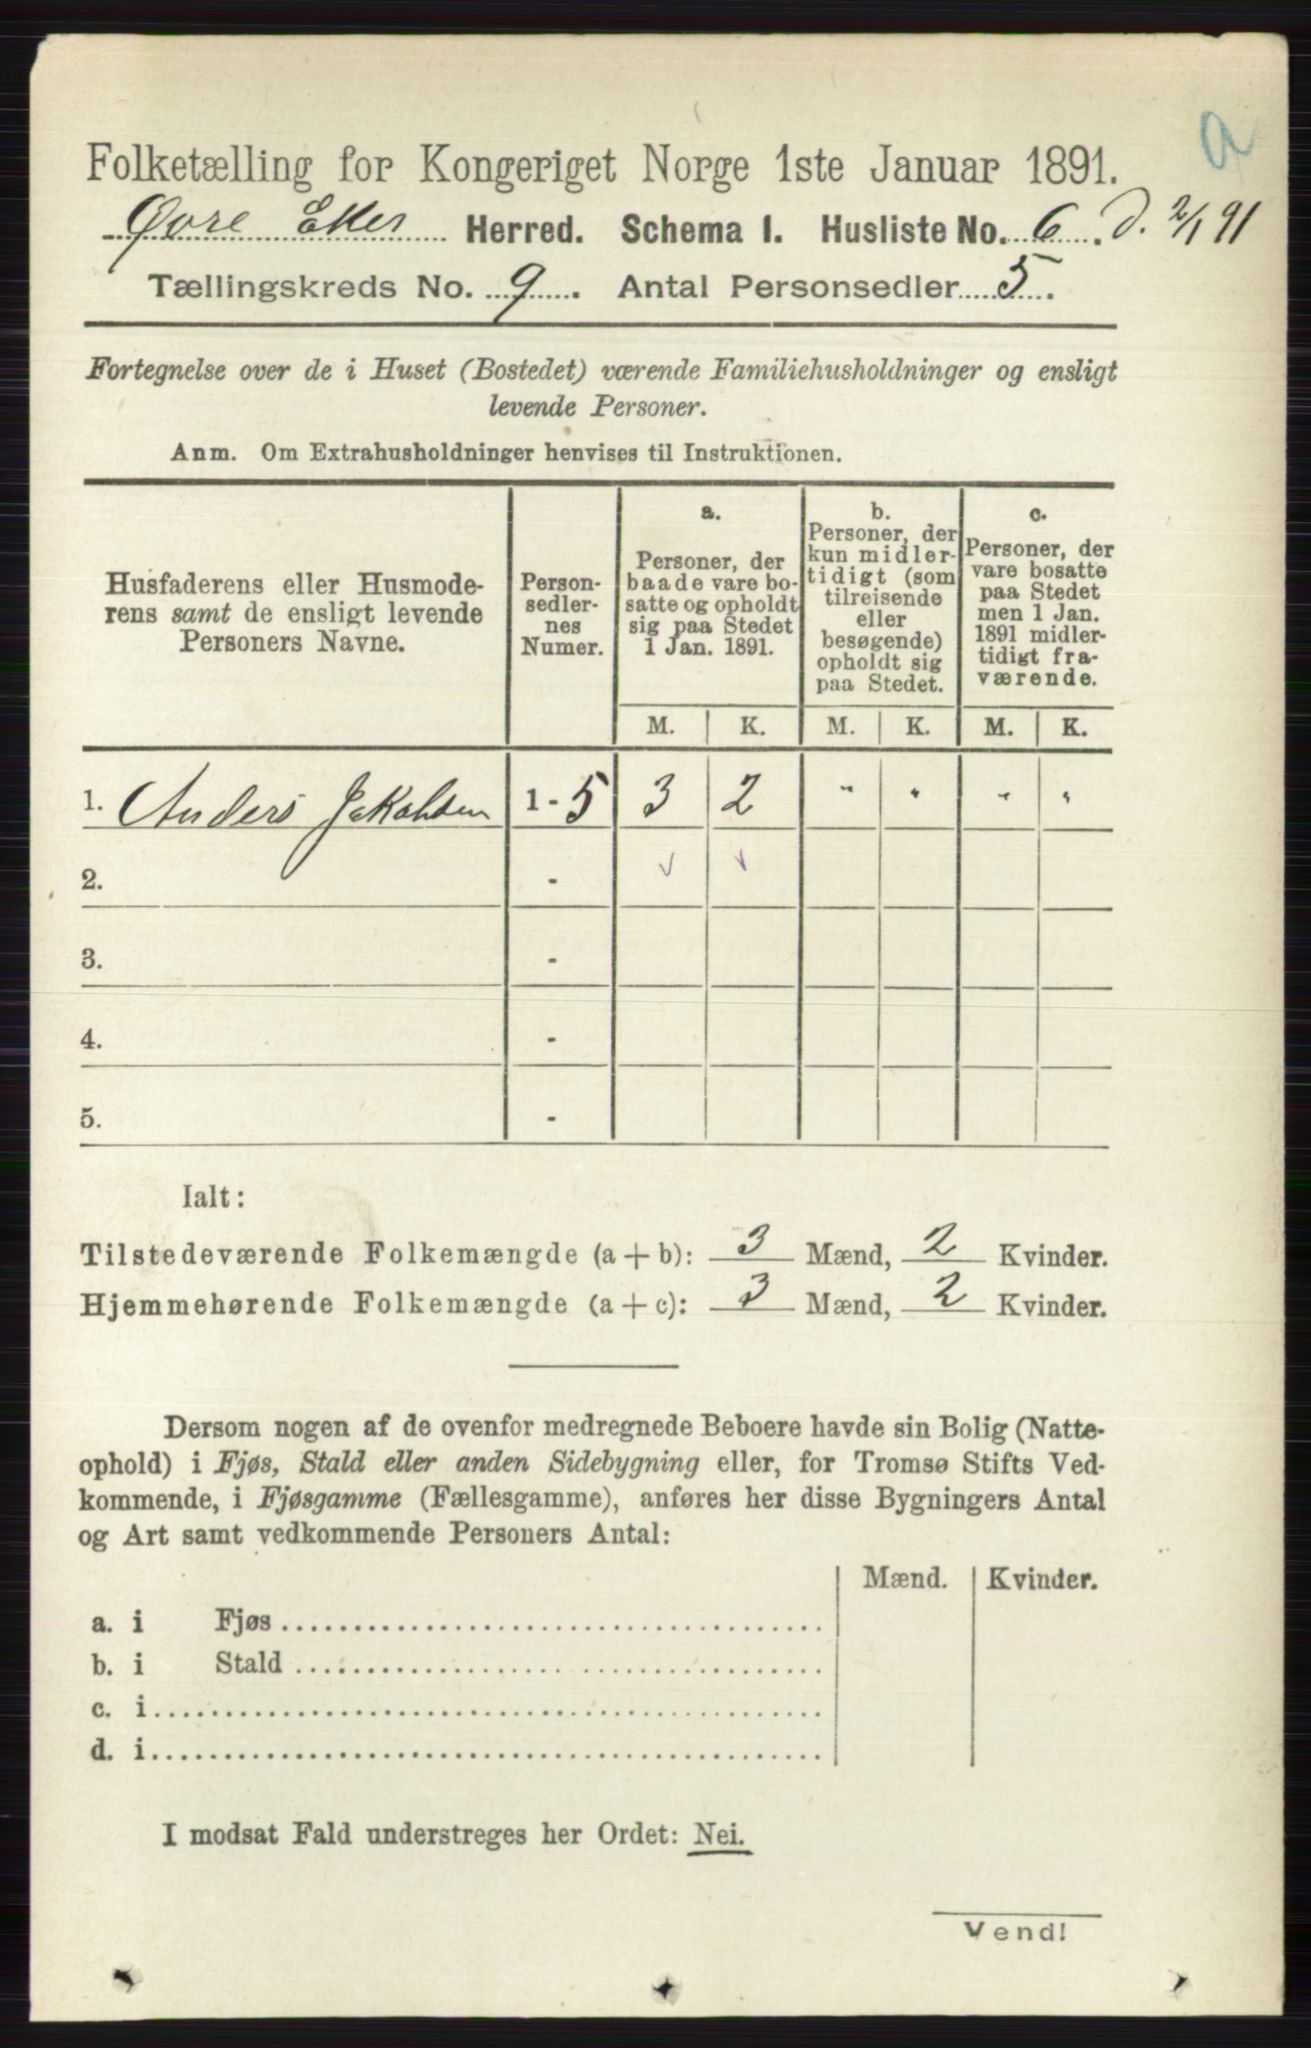 a
Folketælling for Kongeriget Norge 1ste Januar 1891.
Øvre Eker Herred. Schema 1. Husliste No. 6. d. 2/1 91
Tællingskreds No. 9. Antal Personsedler 5.
Fortegnelse over de i Huset (Bostedet) værende Familiehusholdninger og ensligt
levende Personer.
Anm. Om Extrahusholdninger henvises til Instruktionen.
Husfaderens eller Husmode-
rens samt de ensligt levende
Personers Navne.
Person-
sedler-
nes
Numer.
a.
Personer, der
baade vare bo-
satte og opholdt
sig paa Stedet
1 Jan. 1891.
b.
Personer, der
kun midler-
tidigt (som
tilreisende
eller
besøgende)
opholdt sig
paa Stedet.
c.
Personer, der
vare bosatte
paa Stedet
men 1 Jan.
1891 midler-
tidigt fra-
værende.
M. K. M. K. M. K.
1. Anders Jakobsen 1 - 5 3 2 " " " "
2. -
3. -
4. -
5. -
Ialt:
Tilstedeværende Folkemængde (a + b): 3 Mænd, 2 Kvinder.
Hjemmehørende Folkemængde (a + c): 3 Mænd, 2 Kvinder.
Dersom nogen af de ovenfor medregnede Beboere havde sin Bolig (Natte-
ophold) i Fjøs, Stald eller anden Sidebygning eller, for Tromsø Stifts Ved-
kommende, i Fjøsgamme (Fællesgamme), anføres her disse Bygningers Antal
og Art samt vedkommende Personers Antal:
Mænd. Kvinder.
a. i Fjøs
b. i Stald
c. i
d. i
I modsat Fald understreges her Ordet: Nei.
Vend!